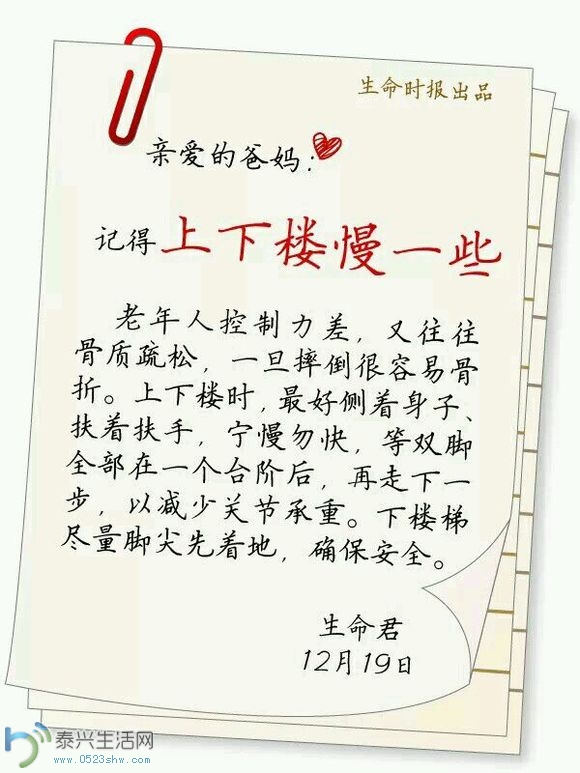 生命时报出品
亲爱的爸妈：
记得上下楼慢一些
老年人控制力差，又往往
骨质疏松，一旦摔倒很容易骨
折。上下楼时，最好侧着身子、
扶着扶手，宁慢勿快，等双脚
全部在一个台阶后，再走下一
步，以减少关节承重。下楼梯
尽量脚尖先着地，确保安全。
生命君
12月19日
泰兴生活网
www.0523shw.com